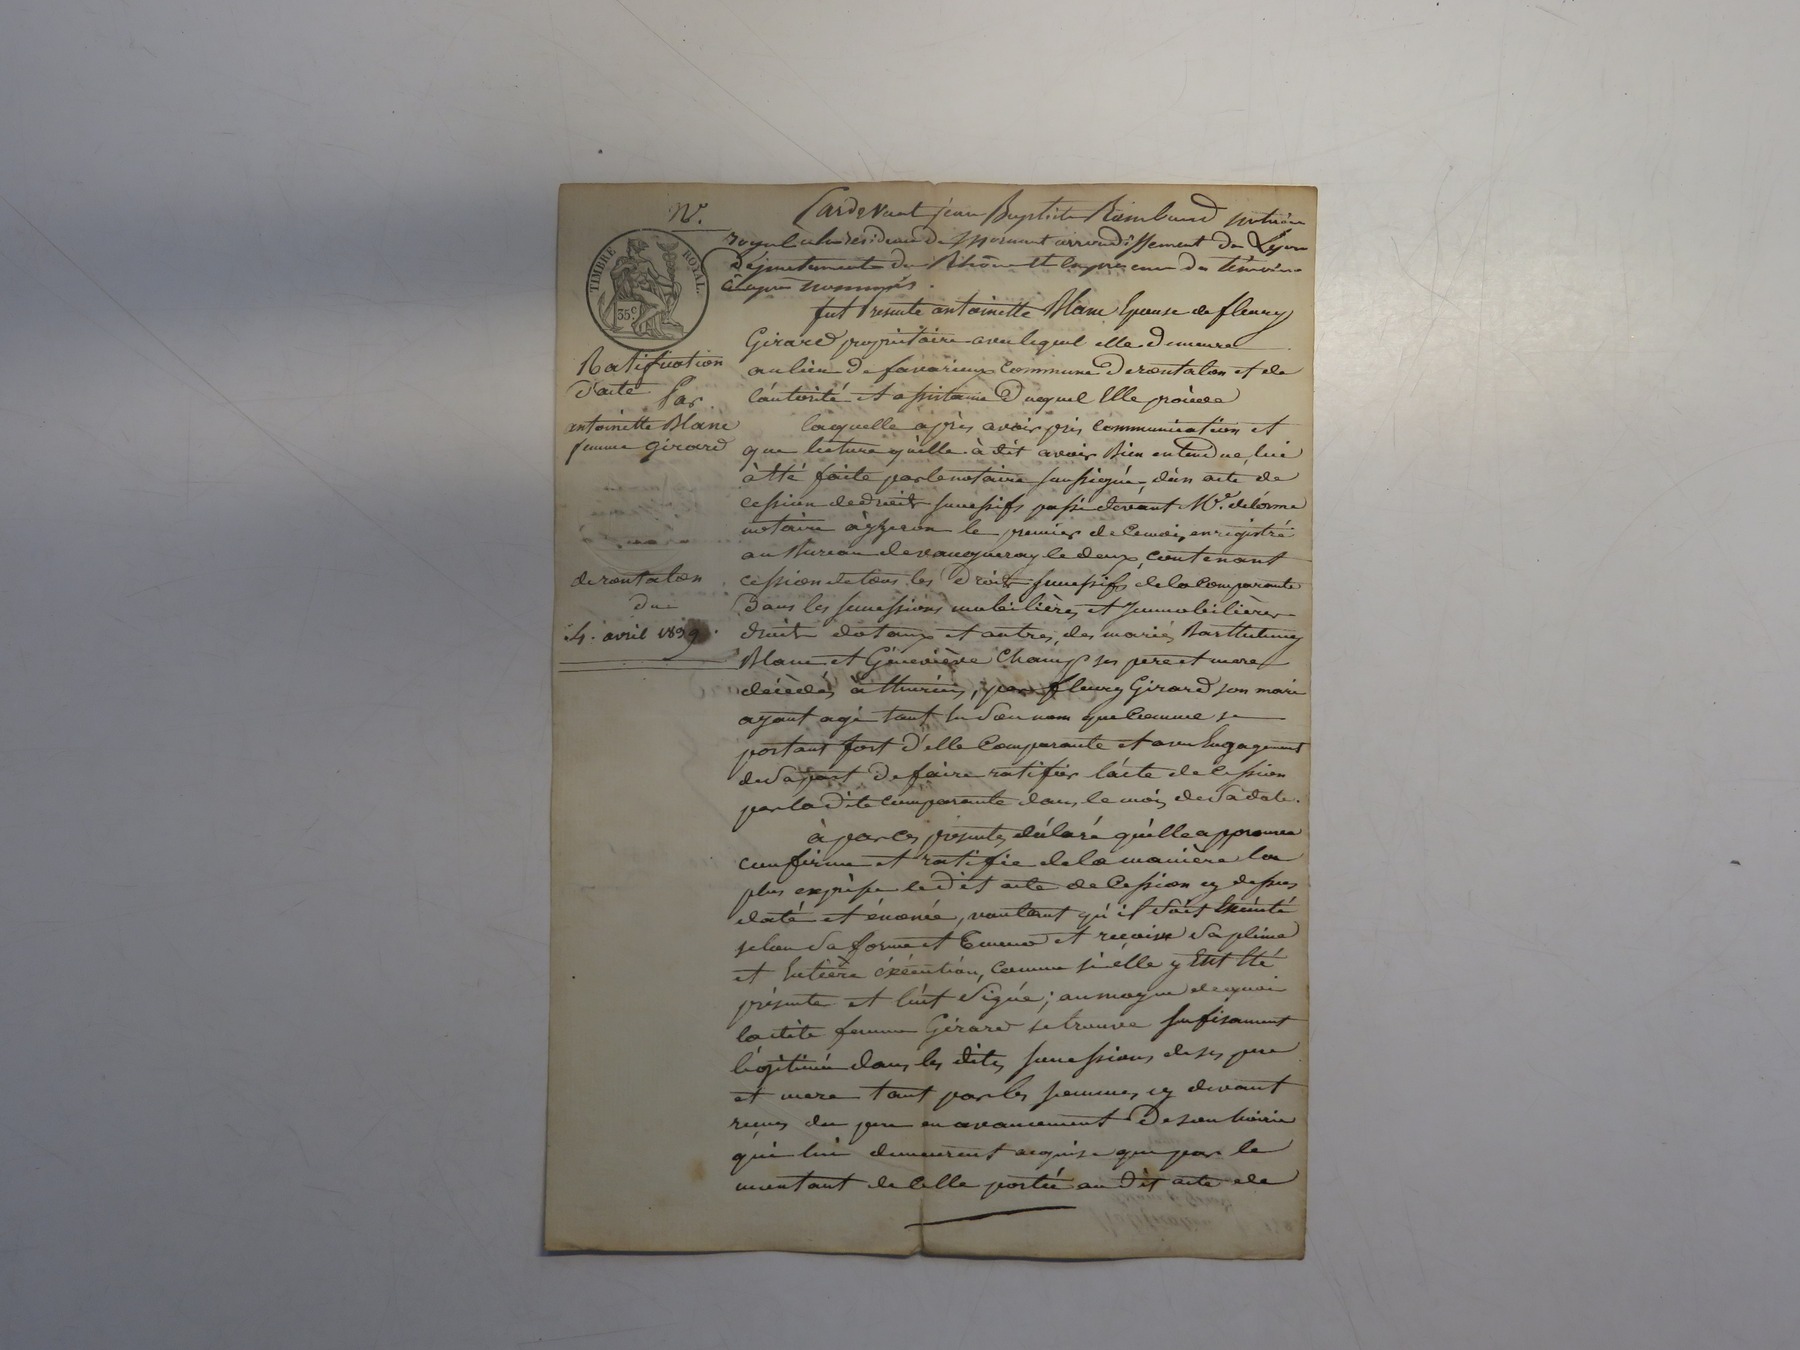 N°.
TIMBRE ROYAL.
35 c
Ratification
d'acte Par
antoinette Blanc
femme Girard
de rontalon
du
4. avril 1839.
Pardevant jean Baptiste Rambaud notaire
royal à la résidence de Mornant arrondissement de Lyon
Département du Rhône et en présence des témoins
ci après nommés.
fut Présente antoinette Blanc Epouse de fleury
Girard propriétaire avec lequel elle demeure
au lieu de favarieux Commune de rontalon et de
l'autorité et assistance Duquel Elle procède
laquelle après avoir pris Communication et
que lecture qu'elle à dit avoir Bien entendue, lui
à Eté faite par le notaire soussigné, d'un acte de
cession de droits successifs passé devant Me. delorme
notaire à yzeron le premier de ce mois, enregistré
au Bureau de vaugneray le deux, contenant
cession de tous les Droits successifs de la Comparante
Dans les successions mobilières et Immobilières
droits dotaux et autres, des mariés Barthelemy
Blanc et Géneviève Champ ses pere et mere
décédés à thurins, par fleury Girard son mari
ayant agi tant En Son nom que Comme se
portant fort d'elle Comparante et avec Engagement
de Sa part De faire ratifier l'acte de Cession
par la dite comparante dans le mois de Sa date.
à par ces présentes déclaré qu'elle approuve
confirme et ratifie de la manière la
plus expresse le dit acte de Cession cy dessus
daté et énoncé, voulant qu'il Soit Exécuté
selon Sa forme et teneur et reçoive Sa pleine
et Entière éxécution, Comme si elle y Eut Eté
présente et l'eut Signé; au moyen de quoi
la dite femme Girard se trouve suffisament
légitimée dans les dites successions de ses pere
et mere tant par les sommes cy devant
reçues du pere en avancement De son hoirie
qui lui demeurent acquise que par le
montant de Celle portée au Dit acte de